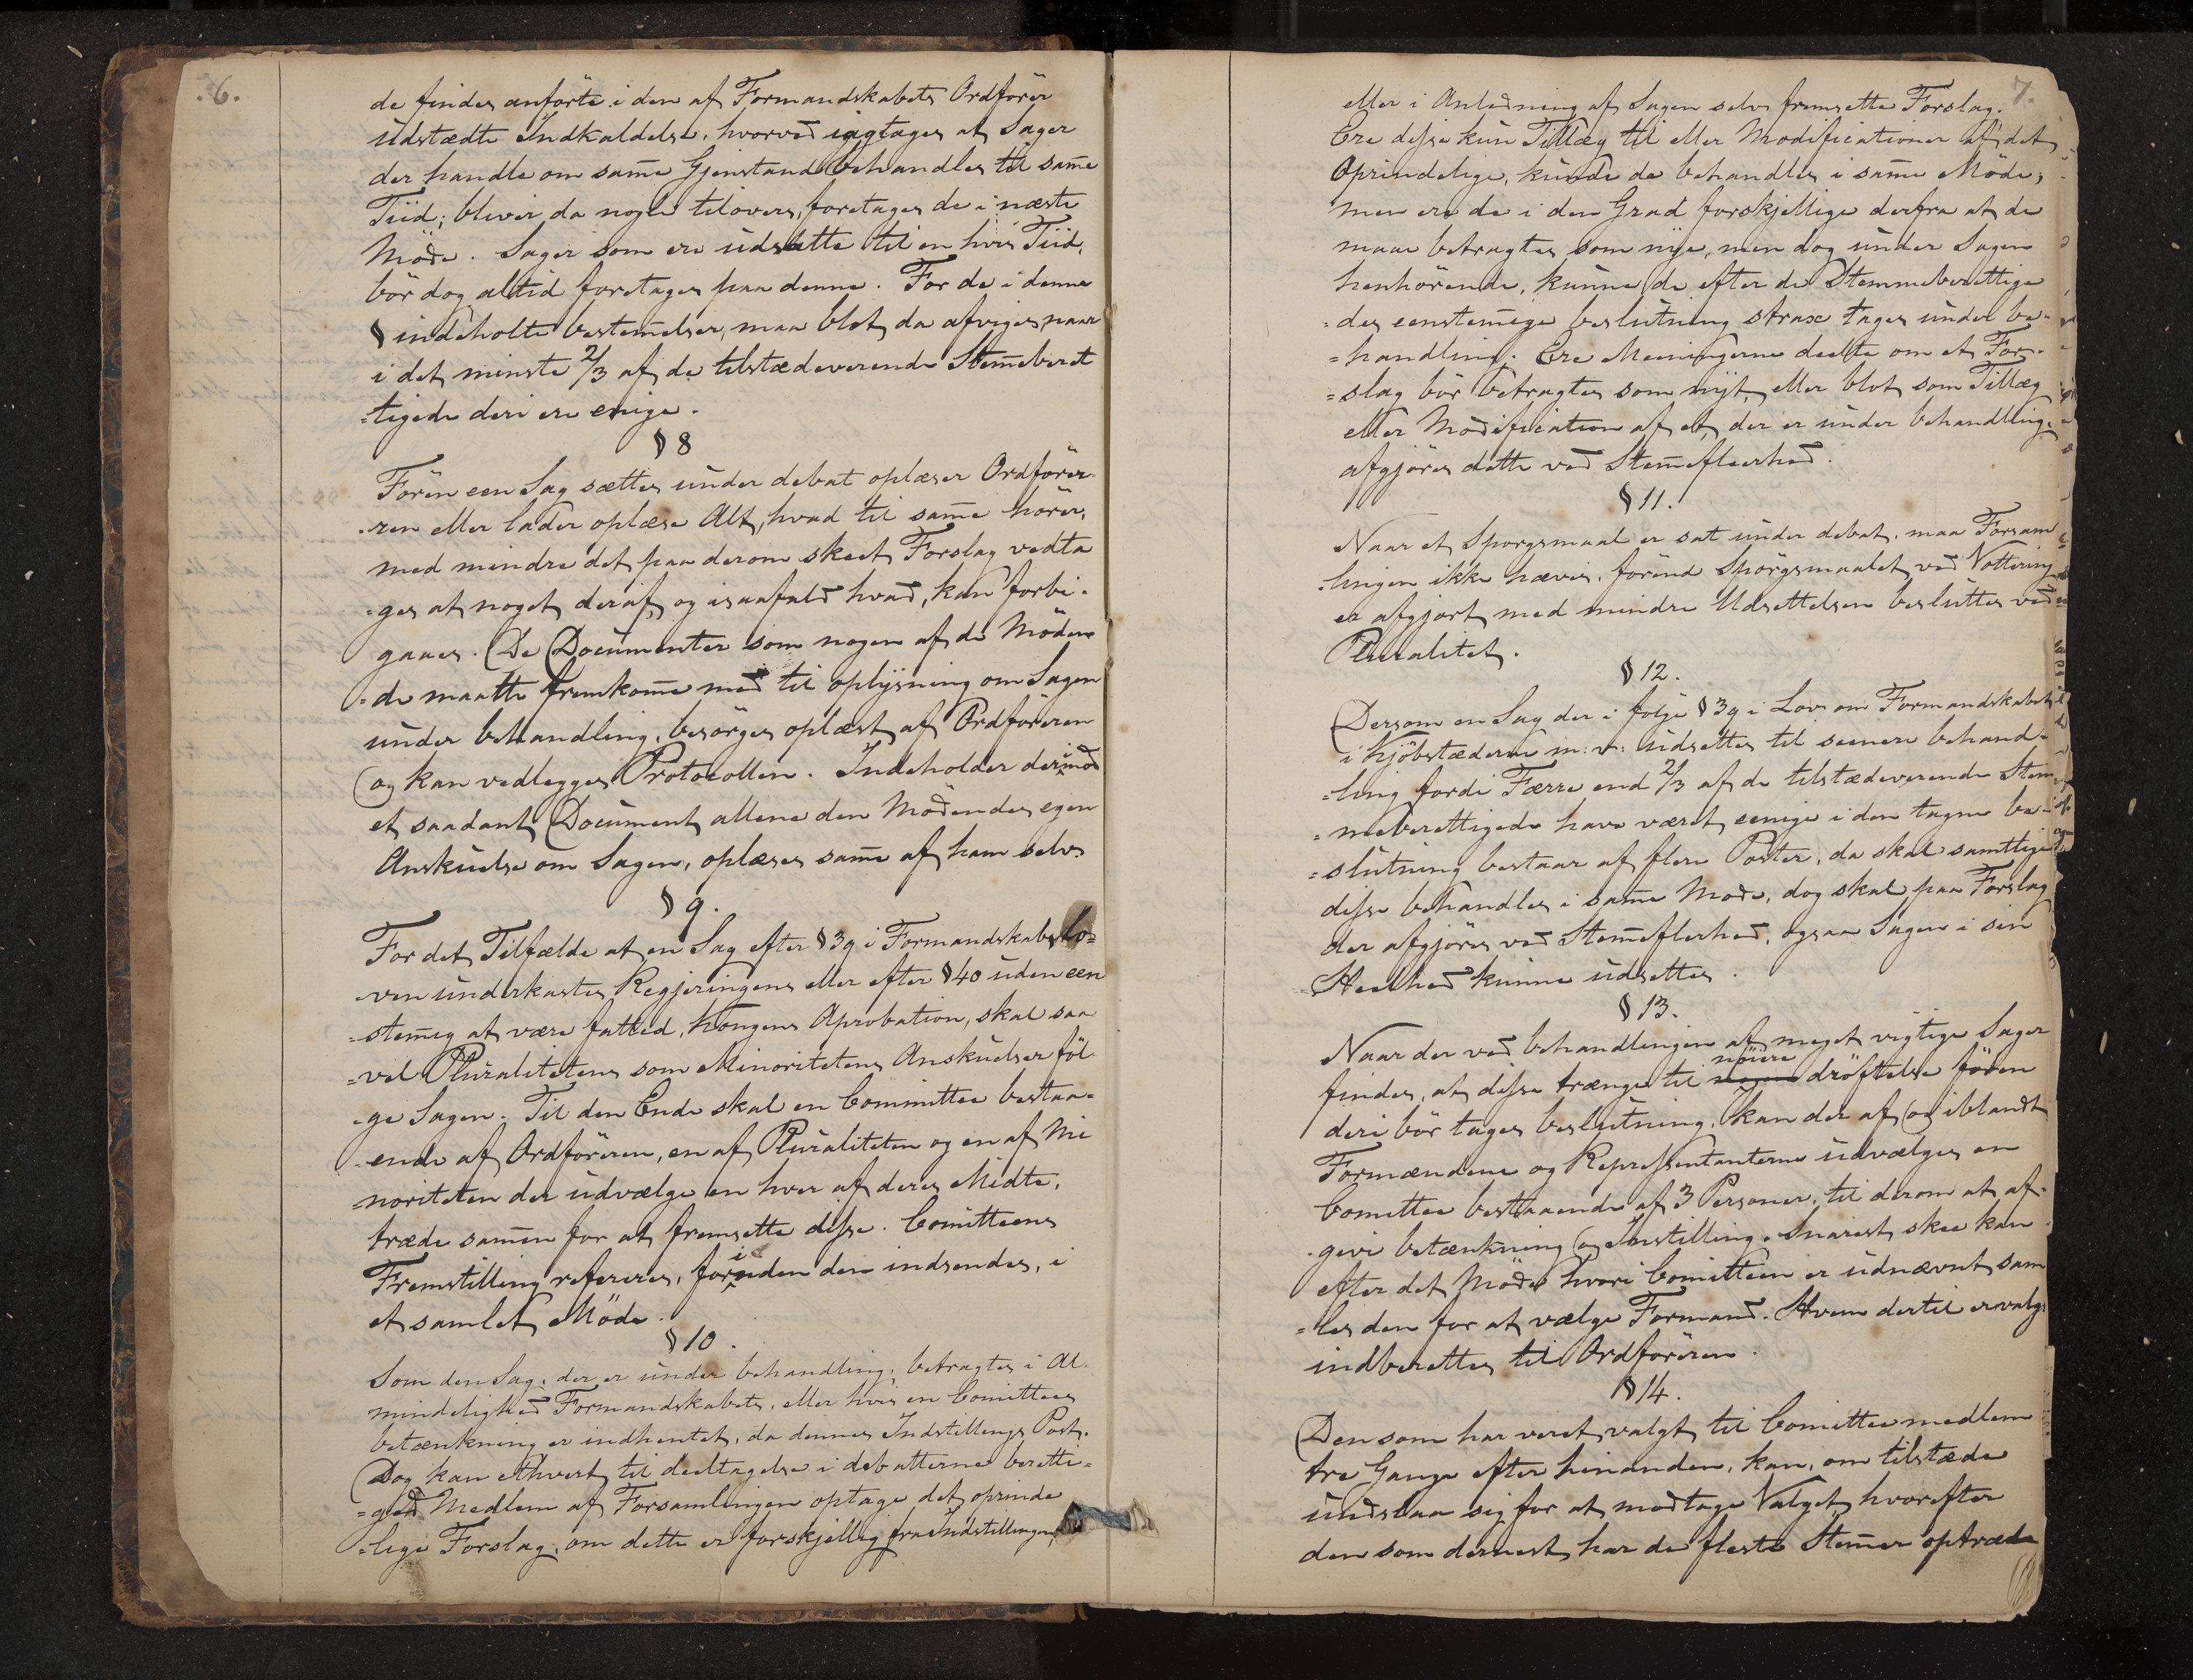 .6.
de findes anförte i den af Formandskabets Ordförer
udstædte Indkaldelse, hvorved iagtages at Sager
der handle om sam̄e Gjenstand behandles til sam̄e
Tiid; bliver da nogle tilovers, foretages de i næste
Möde. Sager som ere udsatte til en hvis Tiid,
bör dog altid foretages paa denne. For de i denne
§ indeholte bestem̄elser, maa blot da afviges, naar
i det minste 2/3 af de tilstædeverende Stem̄eberet
=tigede deri ere enige.
§ 8
Förin een Sag sættes under debat oplæser Ordförer
=ren eller lader oplæse Alt, hvad til sam̄e hörer,
med mindre det paa derom skeet Forslag vedta
=ges at noget deraf, og isaafald hvad, kan forbi=
gaaes. De Documenter som nogen af de Möden
=de maatte fremkom̄e med til oplysning om Sagen
under behandling, besörges oplæst af Ordföreren
og kan vedlegges Protocollen. Indeholder derimod
et saadant Document allene den Mödendes egen
Anskuelse om Sagen, oplæses sam̄e af ham selv.
§ 9.
For det Tilfælde at en Sag efter § 39 i Formandskabslo=
ven underkastes Regjeringens eller efter § 40 uden een
=stem̄ig at være fatted, Kongens Aprobation, skal saa
=vel Pluralitetens som Minoritetens Anskuelser föl
=ge Sagen. Til den Ende skal en Committee bestaa=
=ende af Ordföreren, en af Pluraliteten og en af Mi
=noriteten der udvælge en hver af deres Midte,
træde sam̄en for at fremsette disse. Comitteens
Fremstilling refereres, forinden den indsendes, i
et samlet Möde.
§ 10.
Som den Sag, der er under behandling, betragtes i Al
mindelighed Formandskabets, eller hvis en Comittees
betænkning er indhentet, da dennes Indstillings Post.
Dog kan ethvert til deeltagelse i debatterne beretti=
=get Medlem af Forsamlingen optage det oprinde
=lige Forslag, om dette er forskjellig fra Indstillingen,
7.
eller i Anledning af Sagen selv fremsette Forslag.
Ere disse kun Tillæg til eller Modificationer af det
Oprindelige, kunde de behandles i sam̄e Möde;
men ere de i den Grad forskjellige derfra at de
maae betragtes som nye, men dog under Sagen
henhörende, kunne de efter de Stemmeberettige
=des eenstem̄ige beslutning strax tages under be=
=handling. Ere Meeningerne deelte om et For=
=slag bör betragtes som nyt, eller blot som Tillæg
eller Modification af et, der er under behandling,
afgjöres dette ved Stem̄efleerhed.
§ 11.
Naar et Sporgsmaal er sat under debat, maa Forsam
=lingen ikke hæves, förend Spörgsmaalet ved Vottering
er afgjort med mindre Udsettelsen besluttes ved
Pluralitet.
§ 12.
Dersom en Sag der i fölge § 39 i Lov om Formandskabet
i Kjöbstæderne m: v: udsettes til seenere behand=
=ling fordi Færre end 2/3 af de tilstædeverende Stem
=meberettigede have været eenige i den tagne be=
=slutning bestaar af flere Poster, da skal samttlige
disse behandles i sam̄e Möde, dog skal paa Forslag
der afgjöres ved Stem̄eflerhed, ogsaa Sagen i sin
Heelhed kunne udsettes.
§ 13.
Naar der ved behandlingen af meget vigtige Sager
findes, at disse trænge til nöiere dröftelse fören
deri bör tages beslutning, kan der af og iblandt
Formændene og Repressentanterne udvælges en
Comittee besttaaende af 3 Personer, til derom at af=
=give betænkning og Instilling. Snarest skee kan
efter det Möde hvori Comitteen er udnævnt sam
=les den for at vælge Formand. Hvem dertil er valgt
indberettes til Ordföreren.
§ 14.
Den som har veret valgt til Comitteemedlem
tre Gange efter hinanden, kan, om tilstæde
undslaa sig for at modtage Valget, hvorefter
den som dernest har de fleste Stem̄er optræde